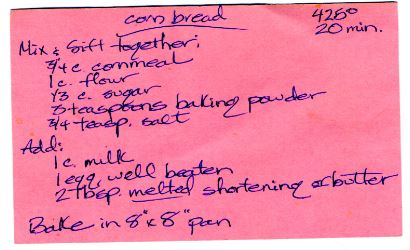 corn bread
425°
20 min.
Mix & Sift together:
3/4 c cornmeal
1 c. flour
1/3 c. sugar
3 teaspoons baking powder
3/4 teasp. salt
Add:
1 c. milk
1 egg, well beaten
2 Tbsp. melted shortening or butter
Bake in 8"x 8" pan